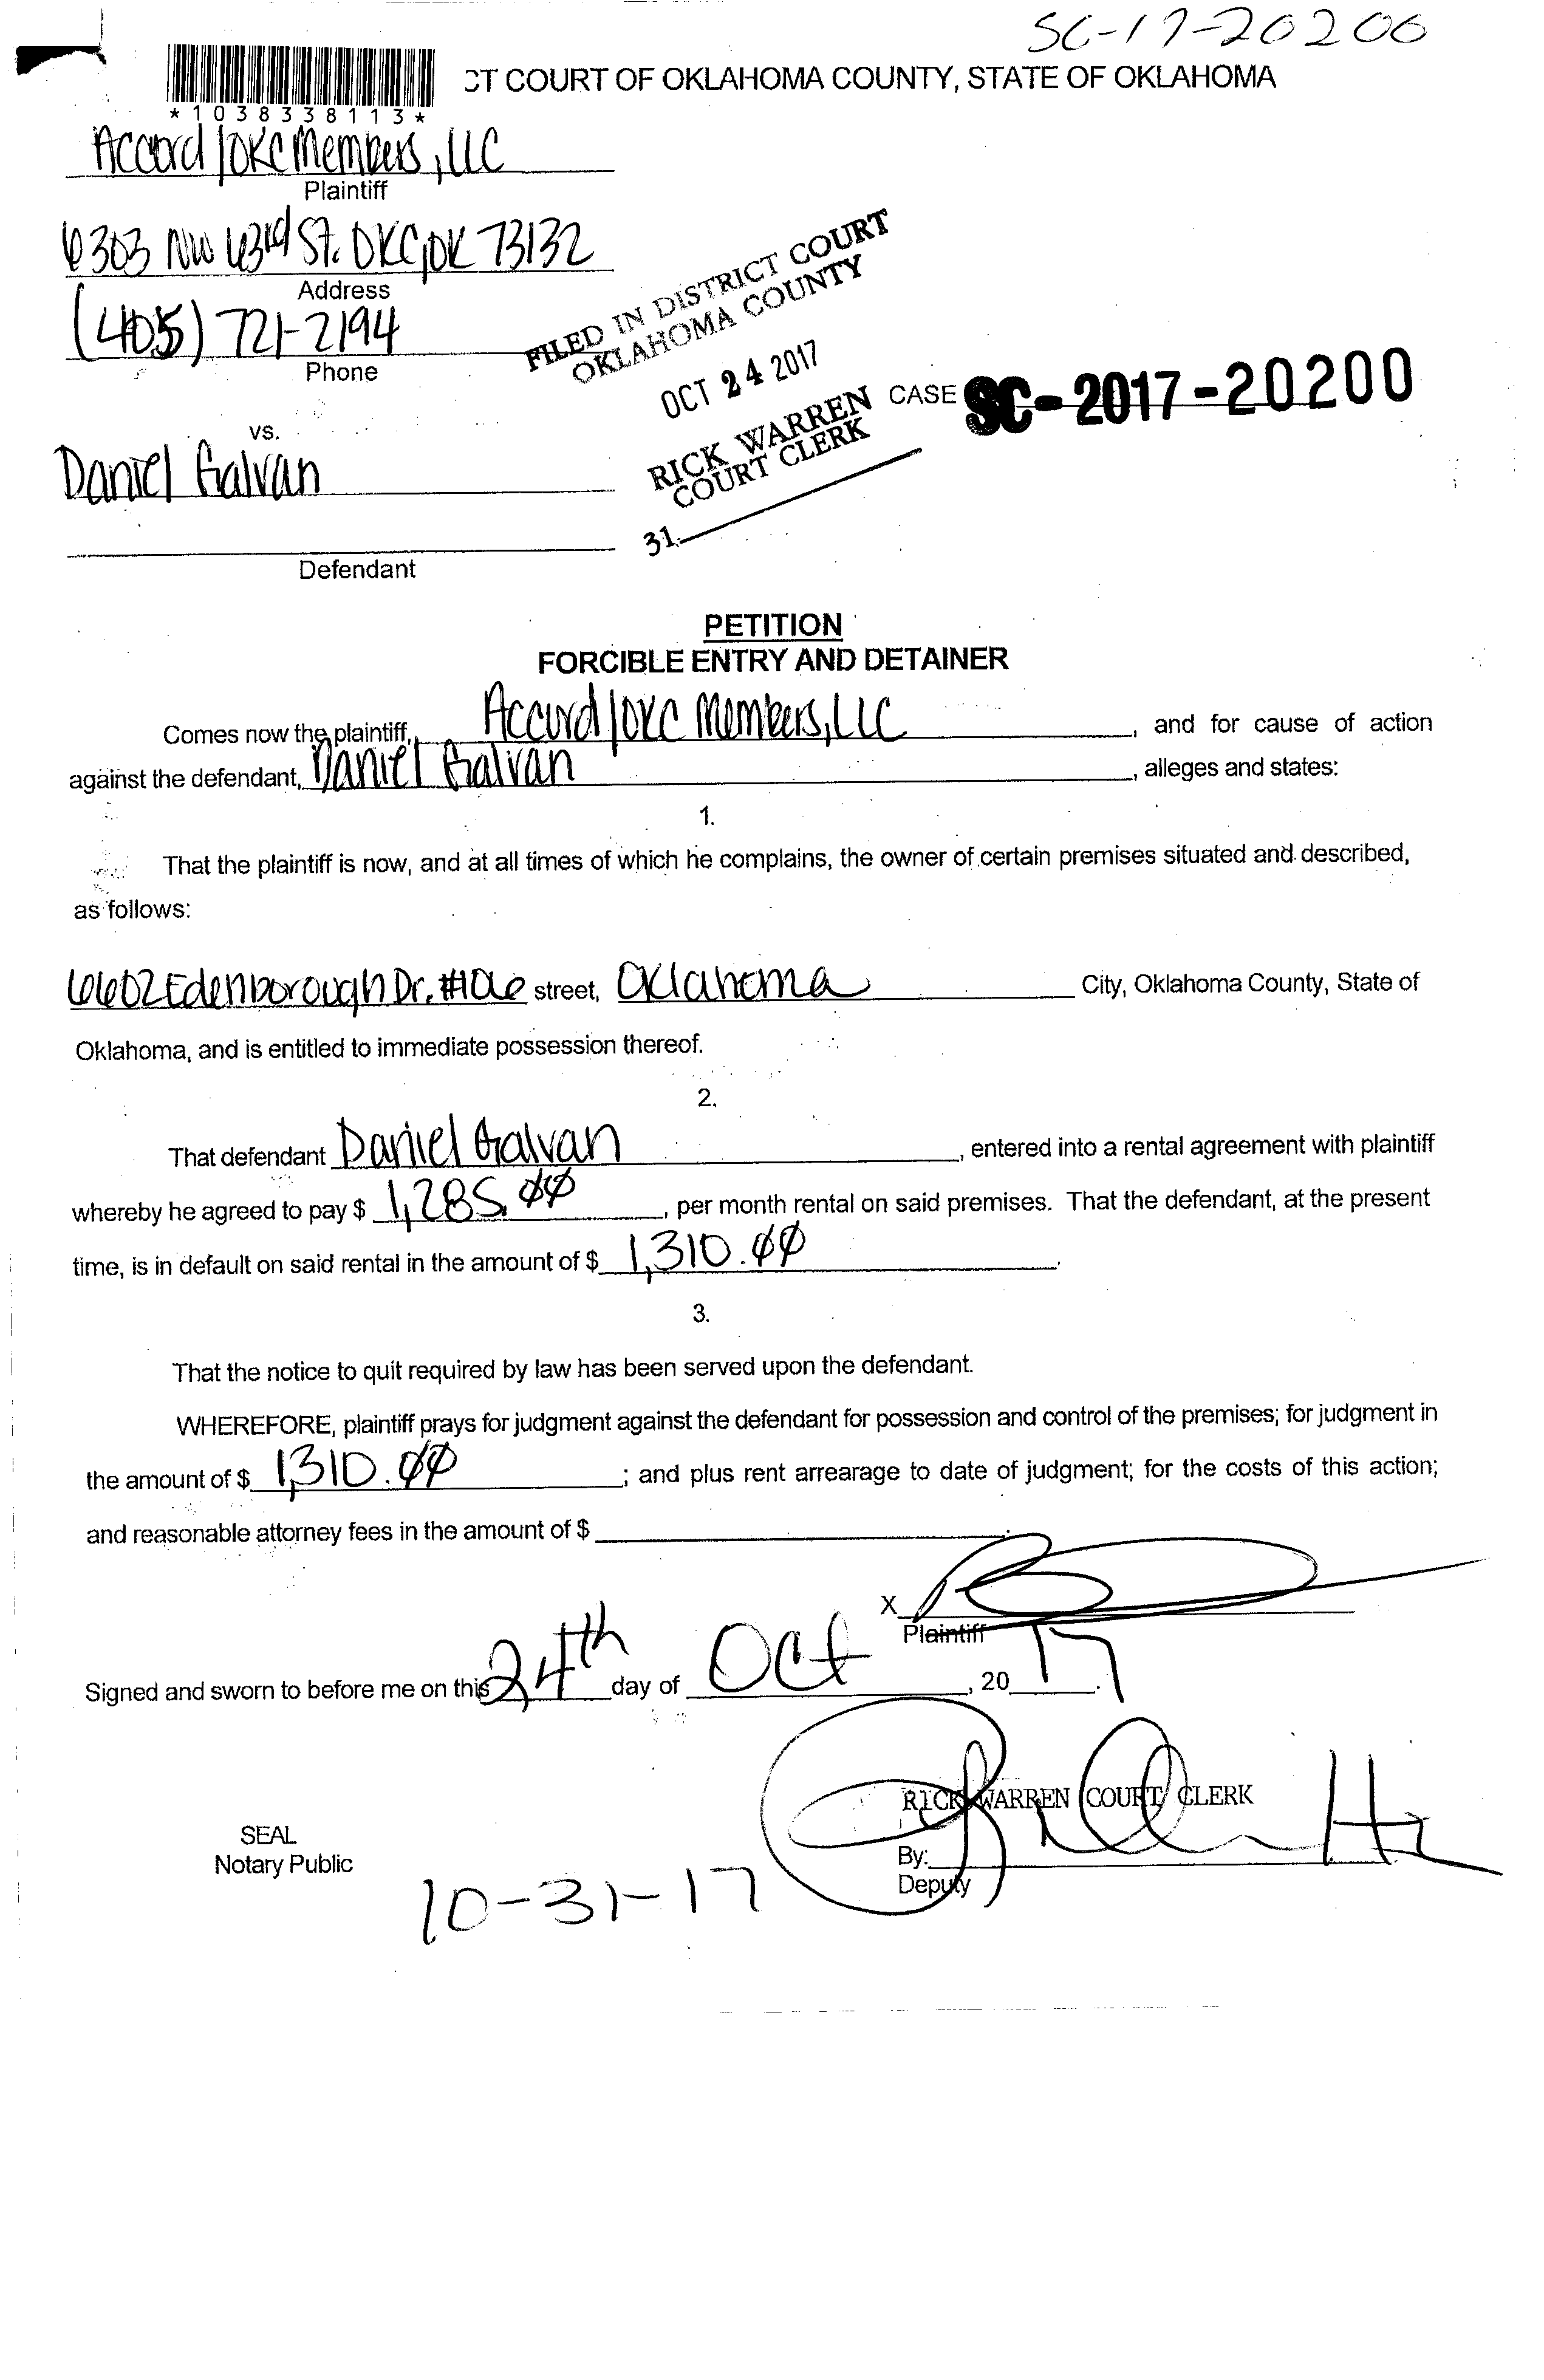 SC-17-20200
CT COURT OF OKLAHOMA COUNTY, STATE OF OKLAHOMA
*1038338113*
Accord/OKC Members, LLC
Plaintiff
6303 NW 63rd St. OKC, OK 73132
Address
(405) 721-2194
Phone
FILED IN DISTRICT COURT
OKLAHOMA COUNTY
OCT 24 2017
RICK WARREN
COURT CLERK
31
CASE SC-2017-20200
vs.
Daniel Galvan
Defendant
PETITION
FORCIBLE ENTRY AND DETAINER
Comes now the plaintiff, Accord/OKC Members, LLC, and for cause of action
against the defendant, Daniel Galvan, alleges and states:
1.
That the plaintiff is now, and at all times of which he complains, the owner of certain premises situated and described,
as follows:
6602 Edenborough Dr. #106 street, Oklahoma City, Oklahoma County, State of
Oklahoma, and is entitled to immediate possession thereof.
2.
That defendant Daniel Galvan, entered into a rental agreement with plaintiff
whereby he agreed to pay $ 1,285.00, per month rental on said premises. That the defendant, at the present
time, is in default on said rental in the amount of $ 1,310.00.
3.
That the notice to quit required by law has been served upon the defendant.
WHEREFORE, plaintiff prays for judgment against the defendant for possession and control of the premises; for judgment in
the amount of $ 1,310.00; and plus rent arrearage to date of judgment; for the costs of this action;
and reasonable attorney fees in the amount of $
X
Plaintiff
Signed and sworn to before me on this 24th day of Oct, 20 17.
RICK WARREN COURT CLERK
SEAL
Notary Public
By:
Deputy
10-31-17